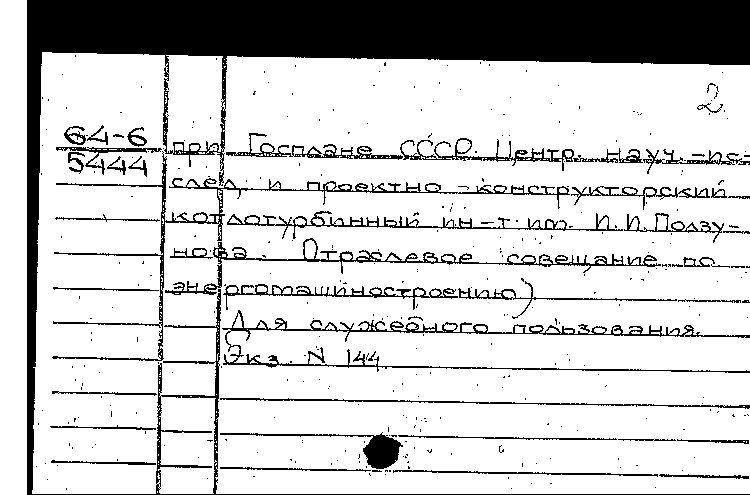 2
64-6
5444
при Госплане СССР. Центр. науч.-ис-
след. и проектно-конструкторский
котлотурбинный ин-т им. И.И.Ползу-
нова. Отраслевое совещание по
энергомашиностроению).
Для служебного пользования.
Экз. N 144